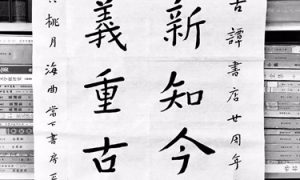 古譚書店廿周年
新知今
義重古
桃月海曲當下書房